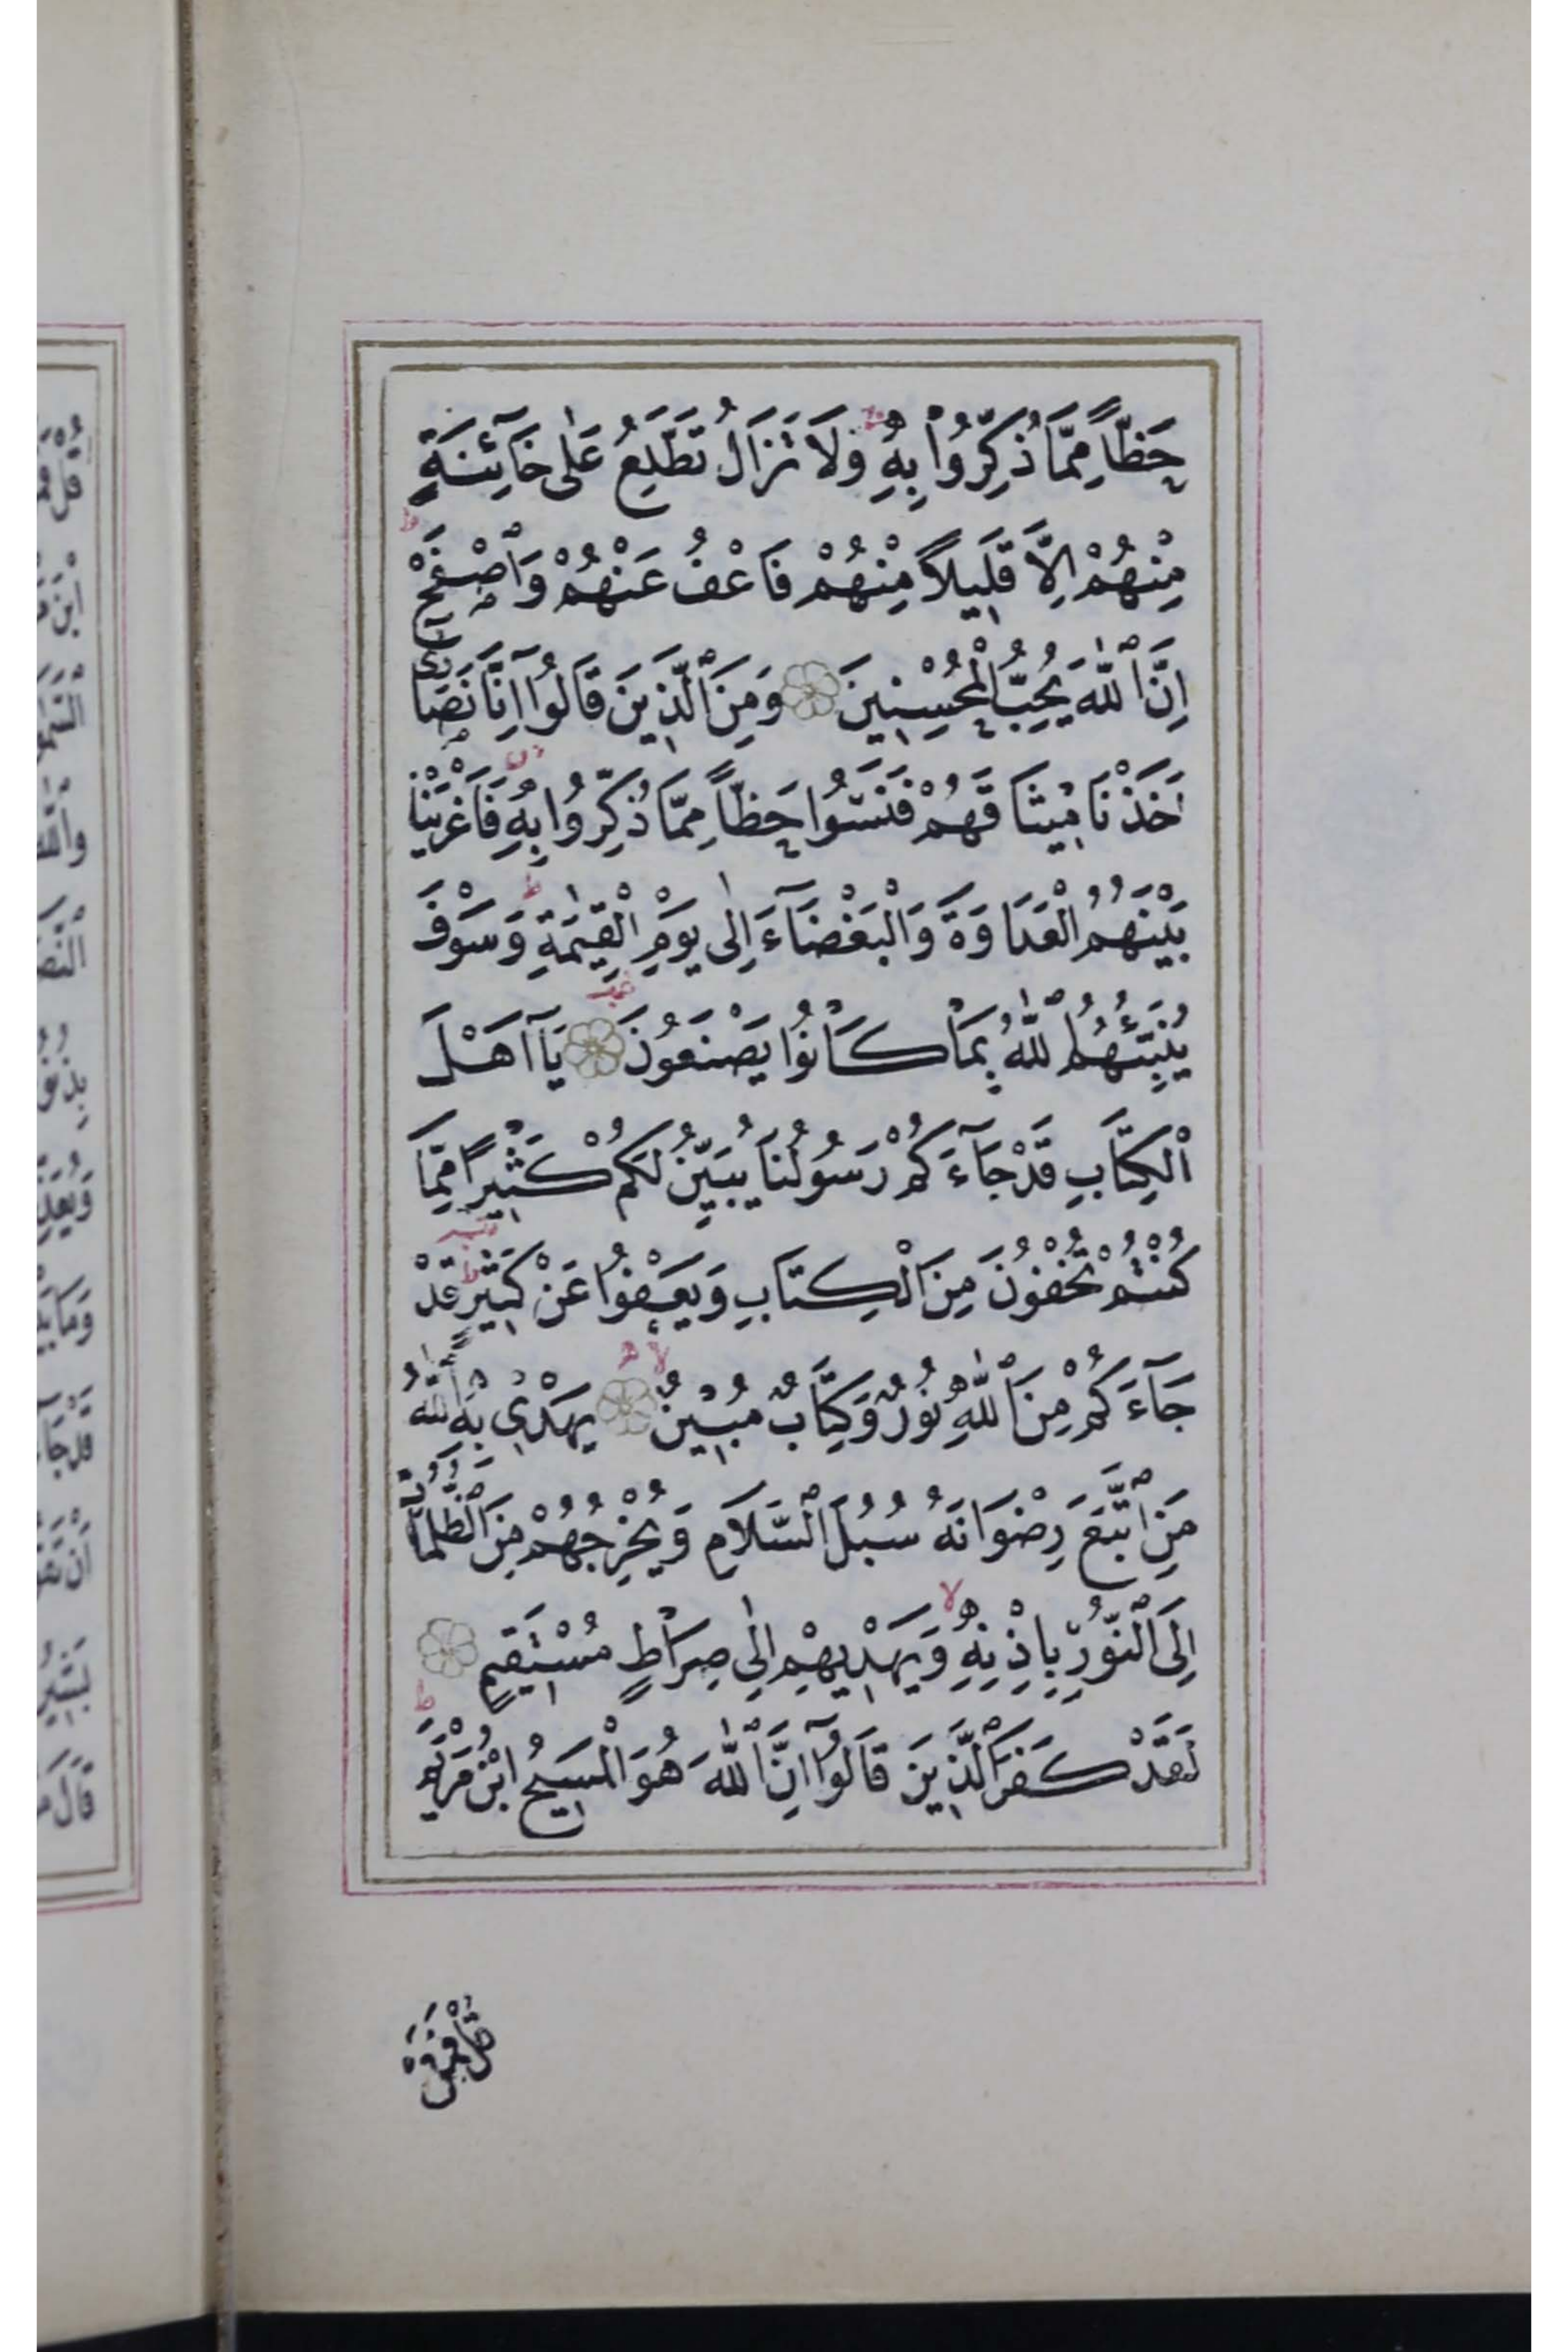 حَظًّا مِمَّا ذُكِّرُوا بِهِ وَلَا تَزَالُ تَطَّلِعُ عَلٰى خَآئِنَةٍ
مِنْهُمْ اِلَّا قَلِيلًا مِنْهُمْ فَاعْفُ عَنْهُمْ وَاصْفَحْ
اِنَّ اللّٰهَ يُحِبُّ الْمُحْسِنِينَ وَمِنَ الَّذِينَ قَالُوا اِنَّا نَصَارٰى
اَخَذْنَا مِيثَاقَهُمْ فَنَسُوا حَظًّا مِمَّا ذُكِّرُوا بِهِ فَاَغْرَيْنَا
بَيْنَهُمُ الْعَدَاوَةَ وَالْبَغْضَآءَ اِلٰى يَوْمِ الْقِيٰمَةِ وَسَوْفَ
يُنَبِّئُهُمُ اللّٰهُ بِمَا كَانُوا يَصْنَعُونَ يَآ اَهْلَ
الْكِتَابِ قَدْ جَآءَكُمْ رَسُولُنَا يُبَيِّنُ لَكُمْ كَثِيرًا مِمَّا
كُنْتُمْ تُخْفُونَ مِنَ الْكِتَابِ وَيَعْفُوا عَنْ كَثِيرٍ قَدْ
جَآءَكُمْ مِنَ اللّٰهِ نُورٌ وَكِتَابٌ مُبِينٌ يَهْدِي بِهِ اللّٰهُ
مَنِ اتَّبَعَ رِضْوَانَهُ سُبُلَ السَّلَامِ وَيُخْرِجُهُمْ مِنَ الظُّلُمَاتِ
اِلَى النُّورِ بِاِذْنِهِ وَيَهْدِيهِمْ اِلٰى صِرَاطٍ مُسْتَقِيمٍ
لَقَدْ كَفَرَ الَّذِينَ قَالُوٓا اِنَّ اللّٰهَ هُوَ الْمَسِيحُ ابْنُ مَرْيَمَ
قُلْ فَمَنْ